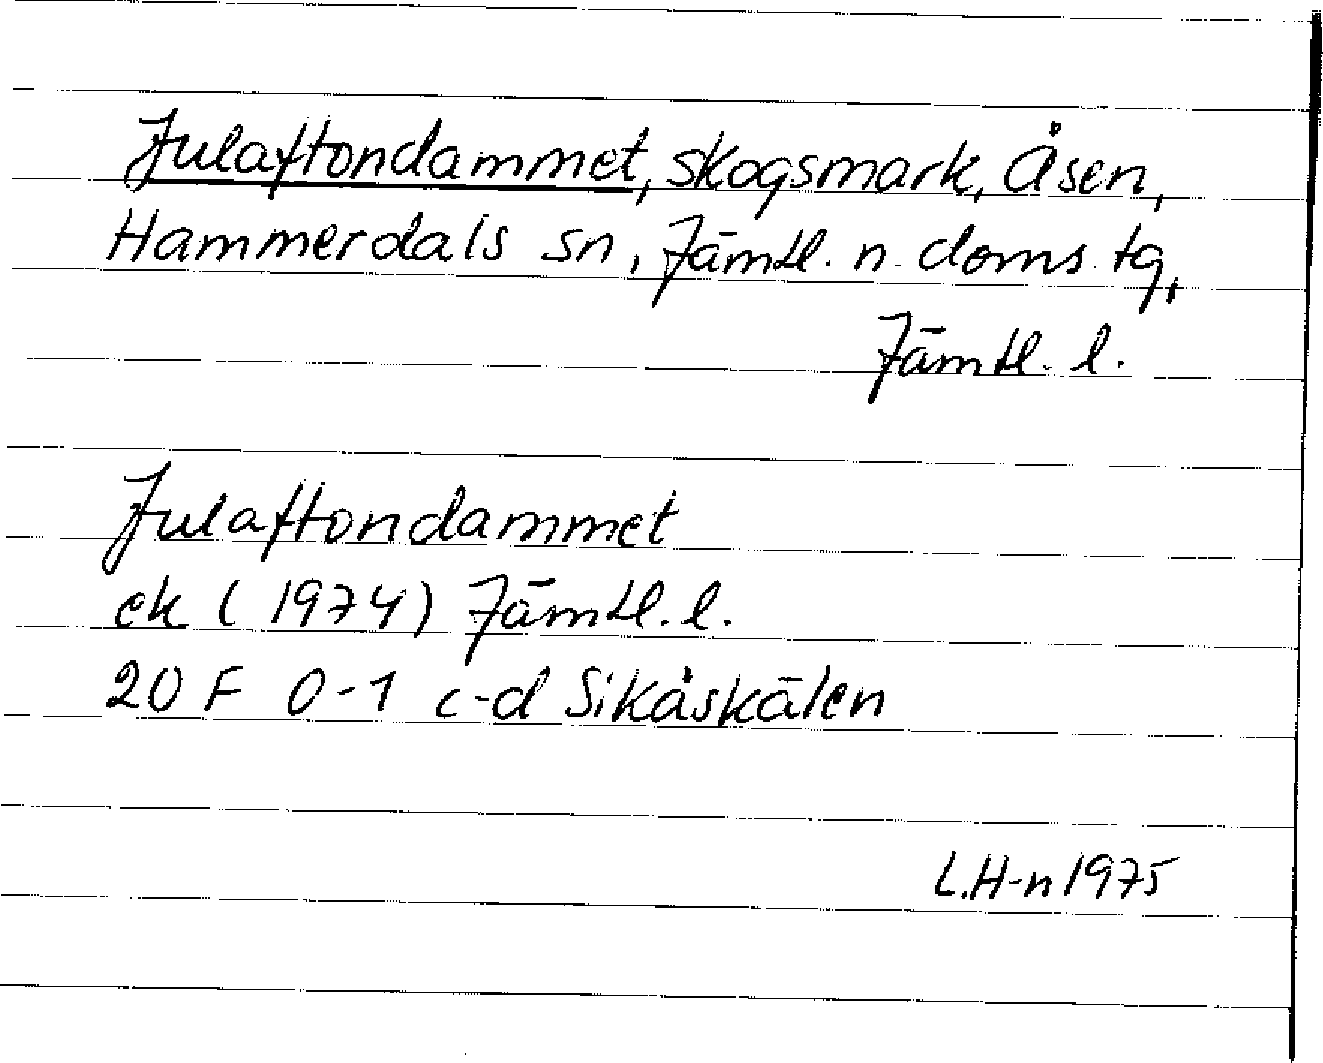 Julaftondammet, skogsmark, Åsen,
Hammerdals sn, Jämtl. n. doms. tg,
Jämtl. l.
Julaftondammet
ek (1974) Jämtl. l.
20 F 0-1 c-d Sikåskälen
L.H-n 1975